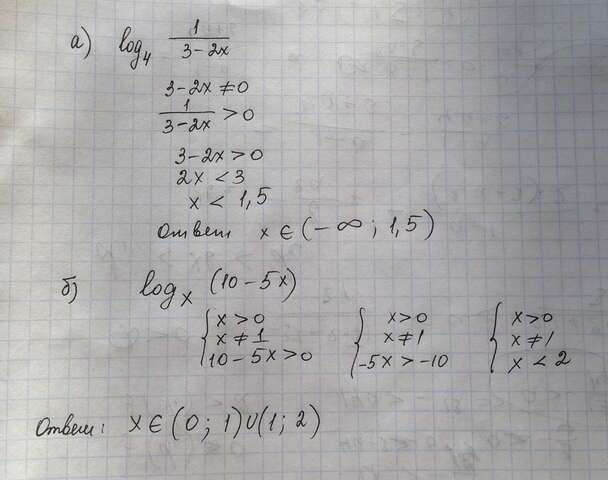 а) log₄ 1/(3-2x)
3-2x ≠ 0
1/(3-2x) > 0
3-2x > 0
2x < 3
x < 1,5
Ответ x ∈ (-∞; 1,5)
б) logₓ (10-5x)
{ x > 0 { x > 0 { x > 0
x ≠ 1 x ≠ 1 x ≠ 1
10-5x > 0 -5x > -10 x < 2
Ответ: x ∈ (0; 1)∪(1; 2)